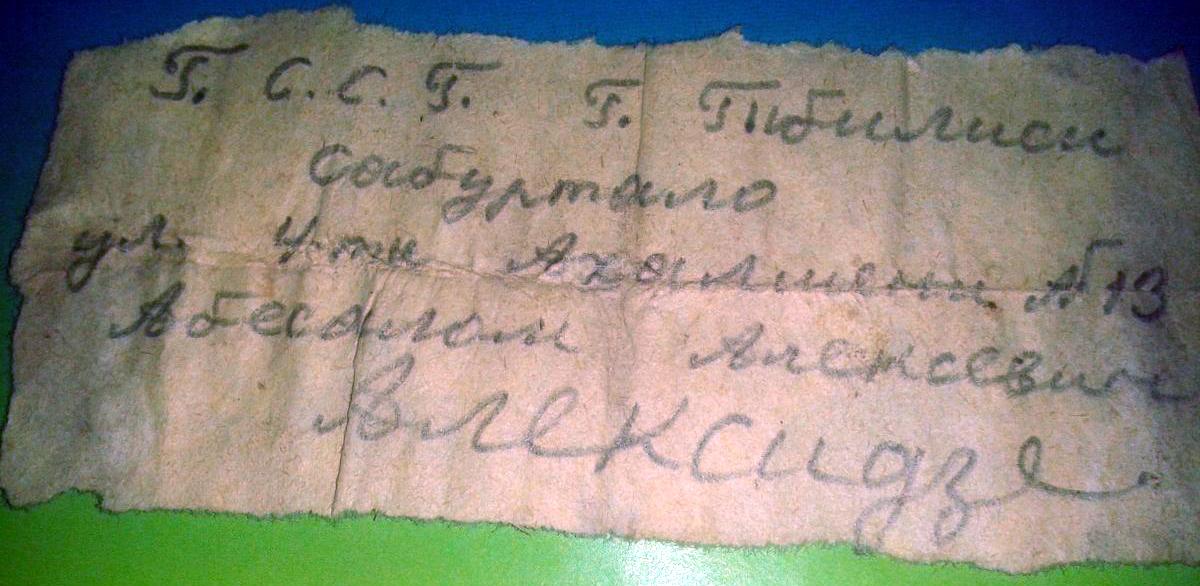 Г. С. С. Г. Г. Тибилиси
Сабуртало
ул. 4-ти Ахалшени № 13
Абесалом Алексевич
Алексидзе